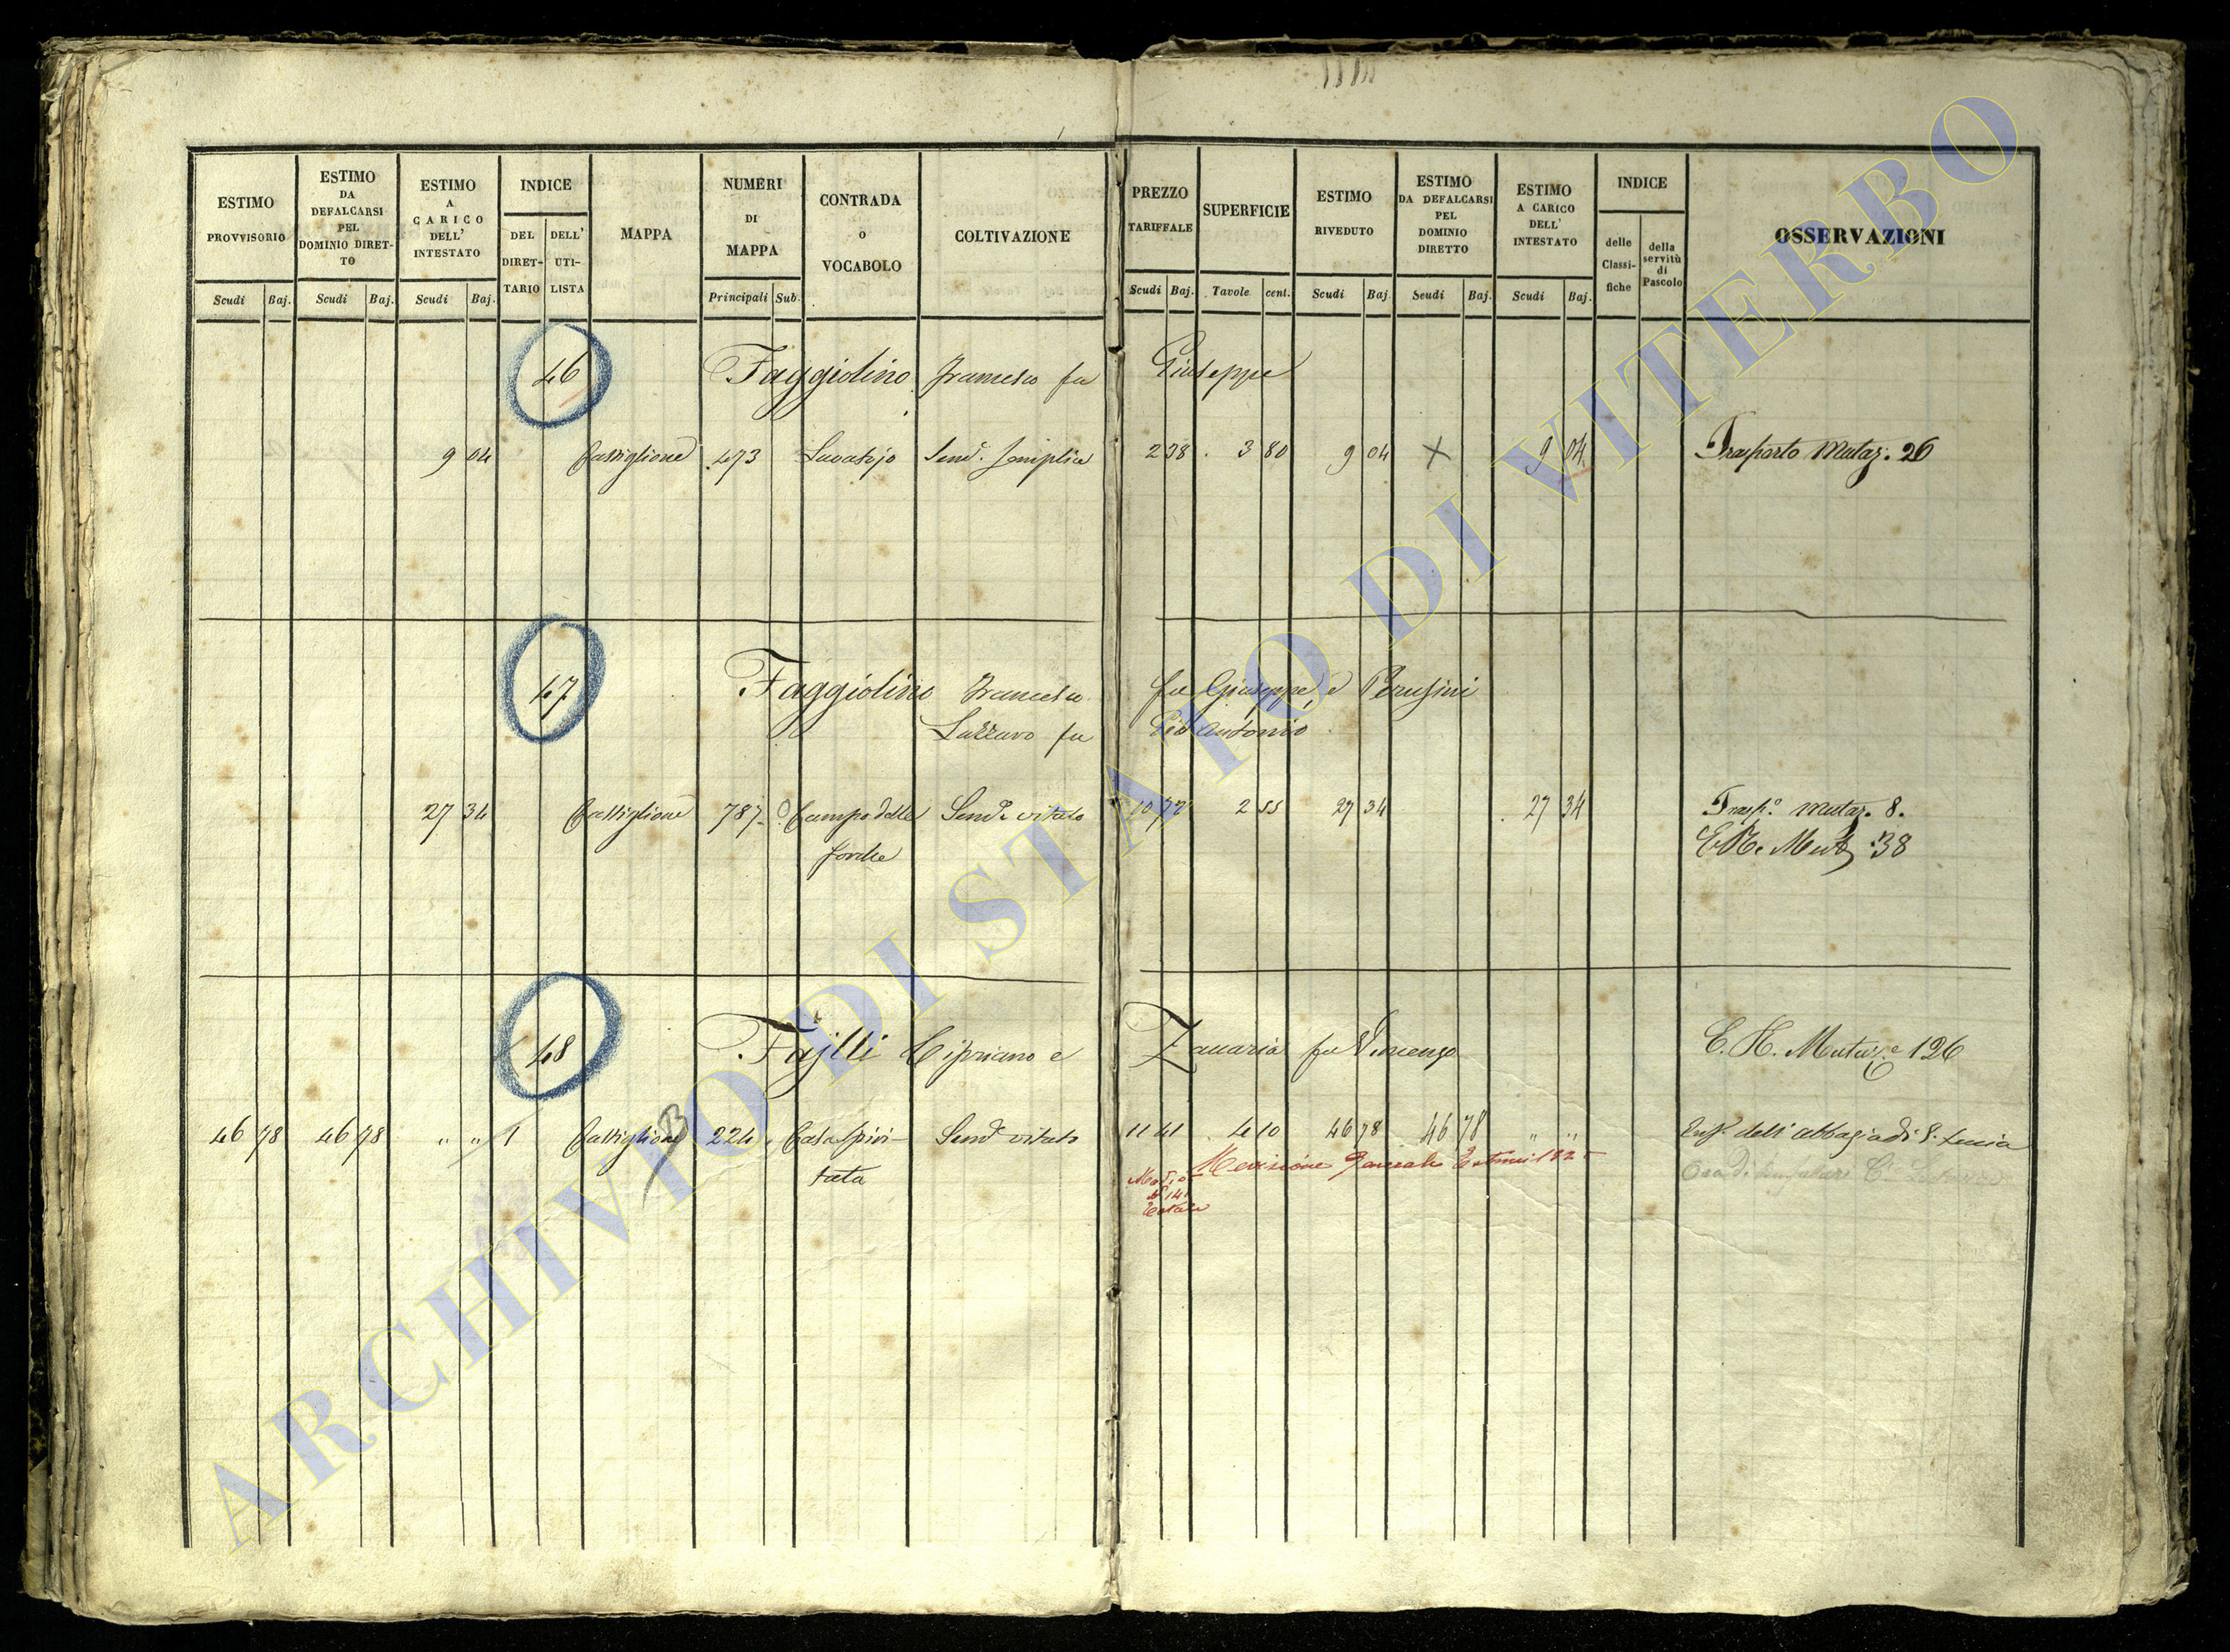 ESTIMO PROVVISORIO
ESTIMO DA DEFALCARSI PEL DOMINIO DIRETTO
ESTIMO A CARICO DELL' INTESTATO
INDICE
DEL DIRETTARIO
DELL' UTILISTA
MAPPA
NUMERI DI MAPPA
CONTRADA o VOCABOLO
COLTIVAZIONE
PREZZO TARIFFALE
SUPERFICIE
ESTIMO RIVEDUTO
ESTIMO DA DEFALCARSI PEL DOMINIO DIRETTO
ESTIMO A CARICO DELL' INTESTATO
INDICE
delle Classifiche
della servitù di Pascolo
OSSERVAZIONI
Scudi Baj. Scudi Baj. Scudi Baj. Principali Sub. Scudi Baj. Tavole cent. Scudi Baj. Scudi Baj. Scudi Baj.
46 Faggiolino Francesco fu Giuseppe
9 04 Castiglione 473 Lavatojo Semo. Semplice 2 38 3 80 9 04 X 9 04 Trasporto Mutaz. 26
47 Faggiolino Francesco fu Giuseppe, e Perugini
Lazzaro fu Gio Antonio
27 34 Castiglione 787 Campo delle Semo. vitato 10 72 2 55 27 34 27 34 Trasp.o Mutaz. 8.
forche Mut 38
48 Fajlli Cipriano e Zaccaria fu Vincenzo Mutaz.e 126
46 78 46 78 " " 1 Castiglione 224 Casa Spiri- Semo vitato 11 41 4 10 46 78 46 78 " " Enf. dell' abbazia di S. Lucia
tata Revisione Generale Estimi
ARCHIVIO DI STATO DI VITERBO